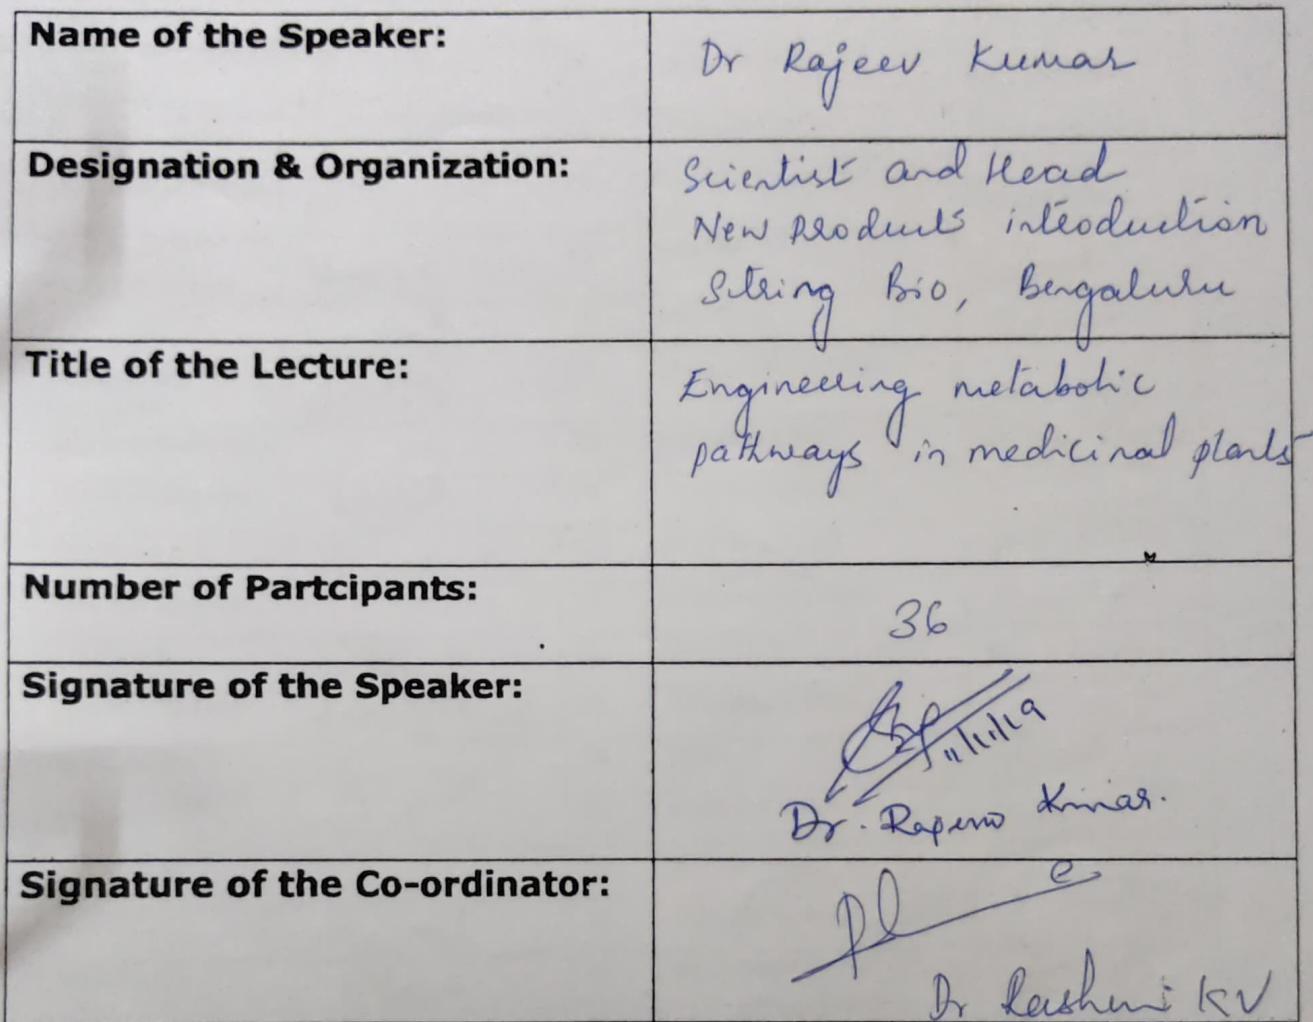 Name of the Speaker:
Dr Rajeev Kumar
Designation & Organization:
Scientist and Head
New Products introduction
String Bio, Bengaluru
Title of the Lecture:
Engineering metabolic
pathways in medicinal plants
Number of Partcipants:
36
Signature of the Speaker:
11/11/19
Dr. Rajeev Kumar.
Signature of the Co-ordinator:
Dr Rashmi KV